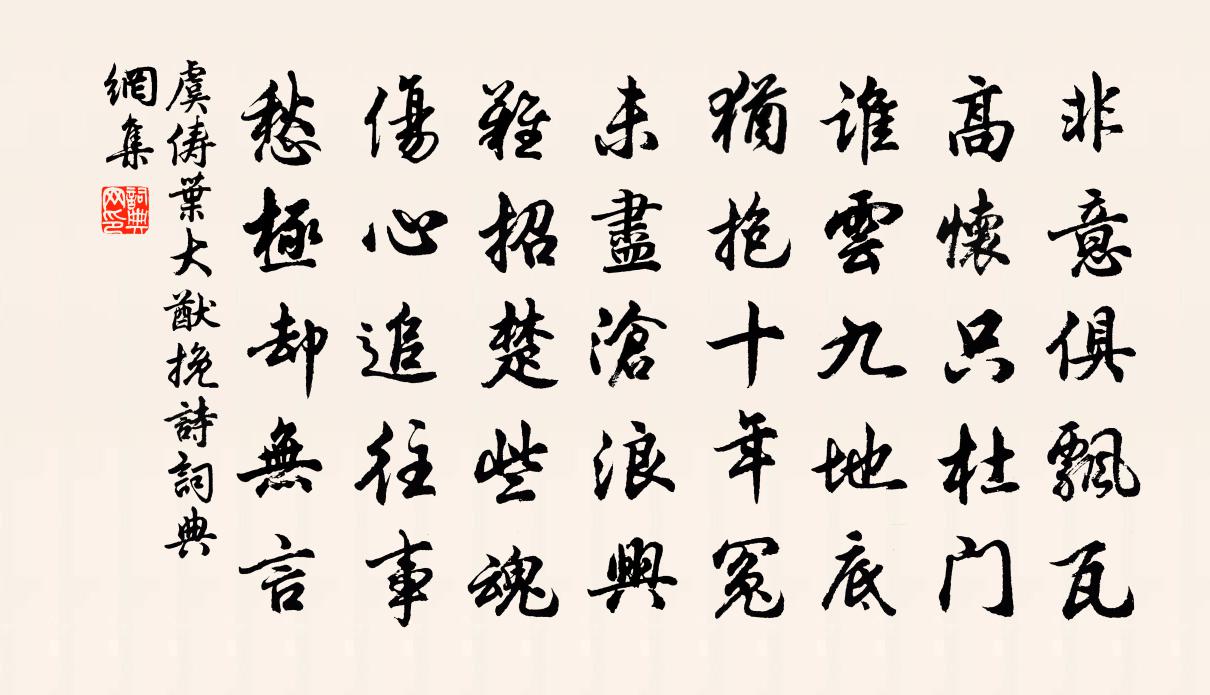 非意俱飄瓦
高懷只杜门
誰雲九地底
猶抱十年冤
未盡滄浪興
難招楚些魂
傷心追往事
愁極却無言
虞儔葉大猷挽詩詞典
網集
詞典
网印